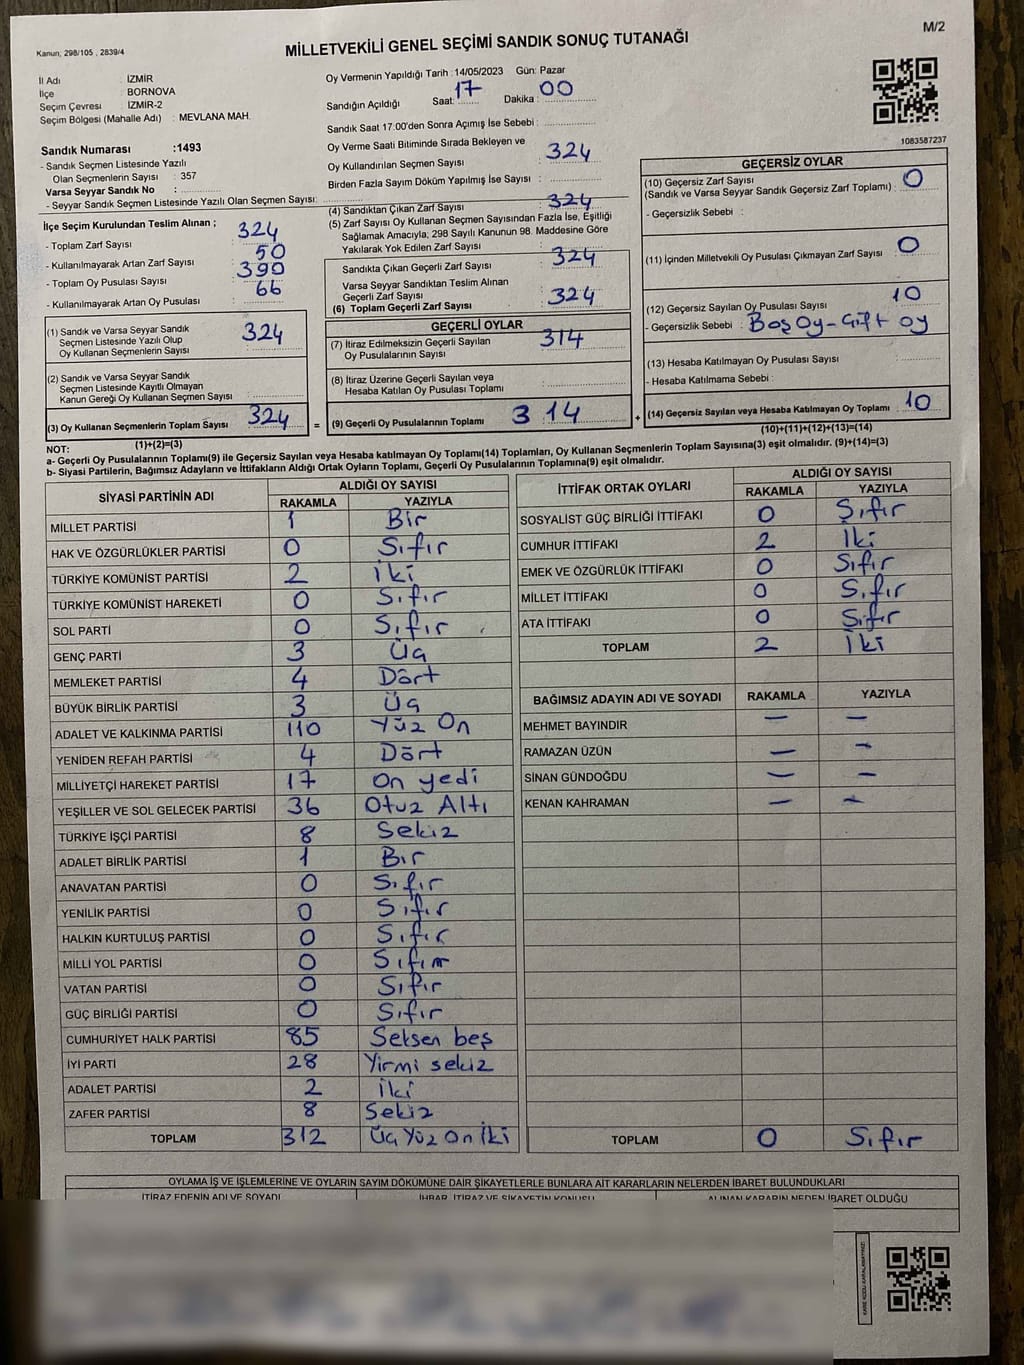 M/2
Kanun; 298/105 , 2839/4
MİLLETVEKİLİ GENEL SEÇİMİ SANDIK SONUÇ TUTANAĞI
İl Adı : İZMİR
İlçe : BORNOVA
Seçim Çevresi : İZMİR-2
Seçim Bölgesi (Mahalle Adı) : MEVLANA MAH.
Sandık Numarası :1493
- Sandık Seçmen Listesinde Yazılı
Olan Seçmenlerin Sayısı : 357
Varsa Seyyar Sandık No :
- Seyyar Sandık Seçmen Listesinde Yazılı Olan Seçmen Sayısı:
Oy Vermenin Yapıldığı Tarih :14/05/2023 Gün: Pazar
Sandığın Açıldığı Saat: 17 Dakika : 00
Sandık Saat 17:00'den Sonra Açımış İse Sebebi :
Oy Verme Saati Bitiminde Sırada Bekleyen ve
Oy Kullandırılan Seçmen Sayısı : 324
Birden Fazla Sayım Döküm Yapılmış İse Sayısı :
1083587237
İlçe Seçim Kurulundan Teslim Alınan ;
- Toplam Zarf Sayısı : 324
- Kullanılmayarak Artan Zarf Sayısı : 50
- Toplam Oy Pusulası Sayısı : 390
- Kullanılmayarak Artan Oy Pusulası : 66
(1) Sandık ve Varsa Seyyar Sandık
Seçmen Listesinde Yazılı Olup
Oy Kullanan Seçmenlerin Sayısı : 324
(2) Sandık ve Varsa Seyyar Sandık
Seçmen Listesinde Kayıtlı Olmayan
Kanun Gereği Oy Kullanan Seçmen Sayısı :
(3) Oy Kullanan Seçmenlerin Toplam Sayısı : 324
(1)+(2)=(3)
(4) Sandıktan Çıkan Zarf Sayısı : 324
(5) Zarf Sayısı Oy Kullanan Seçmen Sayısından Fazla İse, Eşitliği
Sağlamak Amacıyla; 298 Sayılı Kanunun 98. Maddesine Göre
Yakılarak Yok Edilen Zarf Sayısı :
Sandıkta Çıkan Geçerli Zarf Sayısı : 324
Varsa Seyyar Sandıktan Teslim Alınan
Geçerli Zarf Sayısı :
(6) Toplam Geçerli Zarf Sayısı : 324
GEÇERLİ OYLAR
(7) İtiraz Edilmeksizin Geçerli Sayılan
Oy Pusulalarının Sayısı : 314
(8) İtiraz Üzerine Geçerli Sayılan veya
Hesaba Katılan Oy Pusulası Toplamı :
= (9) Geçerli Oy Pusulalarının Toplamı : 314 +
GEÇERSİZ OYLAR
(10) Geçersiz Zarf Sayısı
(Sandık ve Varsa Seyyar Sandık Geçersiz Zarf Toplamı) : 0
- Geçersizlik Sebebi :
(11) İçinden Milletvekili Oy Pusulası Çıkmayan Zarf Sayısı : 0
(12) Geçersiz Sayılan Oy Pusulası Sayısı : 10
- Geçersizlik Sebebi : Boş Oy - Çift oy
(13) Hesaba Katılmayan Oy Pusulası Sayısı :
- Hesaba Katılmama Sebebi :
(14) Geçersiz Sayılan veya Hesaba Katılmayan Oy Toplamı : 10
(10)+(11)+(12)+(13)=(14)
NOT:
a- Geçerli Oy Pusulalarının Toplamı(9) ile Geçersiz Sayılan veya Hesaba katılmayan Oy Toplamı(14) Toplamları, Oy Kullanan Seçmenlerin Toplam Sayısına(3) eşit olmalıdır. (9)+(14)=(3)
b- Siyasi Partilerin, Bağımsız Adayların ve İttifakların Aldığı Ortak Oyların Toplamı, Geçerli Oy Pusulalarının Toplamına(9) eşit olmalıdır.
SİYASİ PARTİNİN ADI ALDIĞI OY SAYISI
RAKAMLA YAZIYLA
MİLLET PARTİSİ 1 Bir
HAK VE ÖZGÜRLÜKLER PARTİSİ 0 Sıfır
TÜRKİYE KOMÜNİST PARTİSİ 2 iki
TÜRKİYE KOMÜNİST HAREKETİ 0 Sıfır
SOL PARTİ 0 Sıfır
GENÇ PARTİ 3 Üç
MEMLEKET PARTİSİ 4 Dört
BÜYÜK BİRLİK PARTİSİ 3 Üç
ADALET VE KALKINMA PARTİSİ 110 Yüz On
YENİDEN REFAH PARTİSİ 4 Dört
MİLLİYETÇİ HAREKET PARTİSİ 17 On yedi
YEŞİLLER VE SOL GELECEK PARTİSİ 36 Otuz Altı
TÜRKİYE İŞÇİ PARTİSİ 8 Sekiz
ADALET BİRLİK PARTİSİ 1 Bir
ANAVATAN PARTİSİ 0 Sıfır
YENİLİK PARTİSİ 0 Sıfır
HALKIN KURTULUŞ PARTİSİ 0 Sıfır
MİLLİ YOL PARTİSİ 0 Sıfır
VATAN PARTİSİ 0 Sıfır
GÜÇ BİRLİĞİ PARTİSİ 0 Sıfır
CUMHURİYET HALK PARTİSİ 85 Seksen beş
İYİ PARTİ 28 Yirmi sekiz
ADALET PARTİSİ 2 İki
ZAFER PARTİSİ 8 Sekiz
TOPLAM 312 Üç Yüz On İki
İTTİFAK ORTAK OYLARI ALDIĞI OY SAYISI
RAKAMLA YAZIYLA
SOSYALİST GÜÇ BİRLİĞİ İTTİFAKI 0 Sıfır
CUMHUR İTTİFAKI 2 İki
EMEK VE ÖZGÜRLÜK İTTİFAKI 0 Sıfır
MİLLET İTTİFAKI 0 Sıfır
ATA İTTİFAKI 0 Sıfır
TOPLAM 2 İki
BAĞIMSIZ ADAYIN ADI VE SOYADI RAKAMLA YAZIYLA
MEHMET BAYINDIR — —
RAMAZAN ÜZÜN — —
SİNAN GÜNDOĞDU — —
KENAN KAHRAMAN — —
TOPLAM 0 Sıfır
OYLAMA İŞ VE İŞLEMLERİNE VE OYLARIN SAYIM DÖKÜMÜNE DAİR ŞİKAYETLERLE BUNLARA AİT KARARLARIN NELERDEN İBARET BULUNDUKLARI
İTİRAZ EDENİN ADI VE SOYADI İHBAR, İTİRAZ VE ŞİKAYETİN KONUSU ALINAN KARARIN NEDEN İBARET OLDUĞU